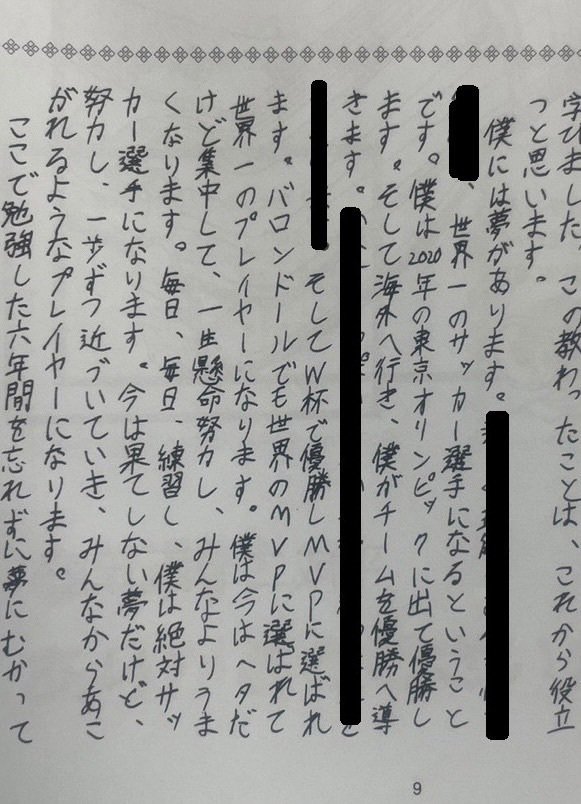 学びました。この教わったことは、これから役立
つと思います。
僕には夢があります。
、世界一のサッカー選手になるということ
です。僕は2020年の東京オリンピックに出て優勝し
ます。そして海外へ行き、僕がチームを優勝へ導
きます。
そしてW杯で優勝しMVPに選ばれ
ます。バロンドールでも世界のMVPに選ばれて
世界一のプレイヤーになります。僕は今はヘタだ
けど集中して、一生懸命努力し、みんなよりうま
くなります。毎日、毎日、練習し、僕は絶対サッ
カー選手になります。今は果てしない夢だけど、
努力し、一歩ずつ近づいていき、みんなからあこ
がれるようなプレイヤーになります。
ここで勉強した六年間を忘れずに夢にむかって
9